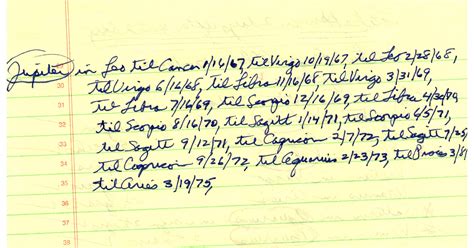 Jupiter in Leo til Cancer 1/16/67, til Virgo 10/19/67, til Leo 2/28/68,
til Virgo 6/16/68, til Libra 11/16/68, til Virgo 3/31/69,
til Libra 7/16/69, til Scorpio 12/16/69, til Libra 4/30/70,
32 til Scorpio 8/16/70, til Sagitt 1/14/71, til Scorpio 6/5/71,
33 til Sagitt 9/12/71, til Capricorn 2/7/72, til Sagitt 7/25/
34 til Capricorn 9/26/72, til Aquarius 2/23/73, til Pisces 3/8/
35 til Aries 3/19/75,
38